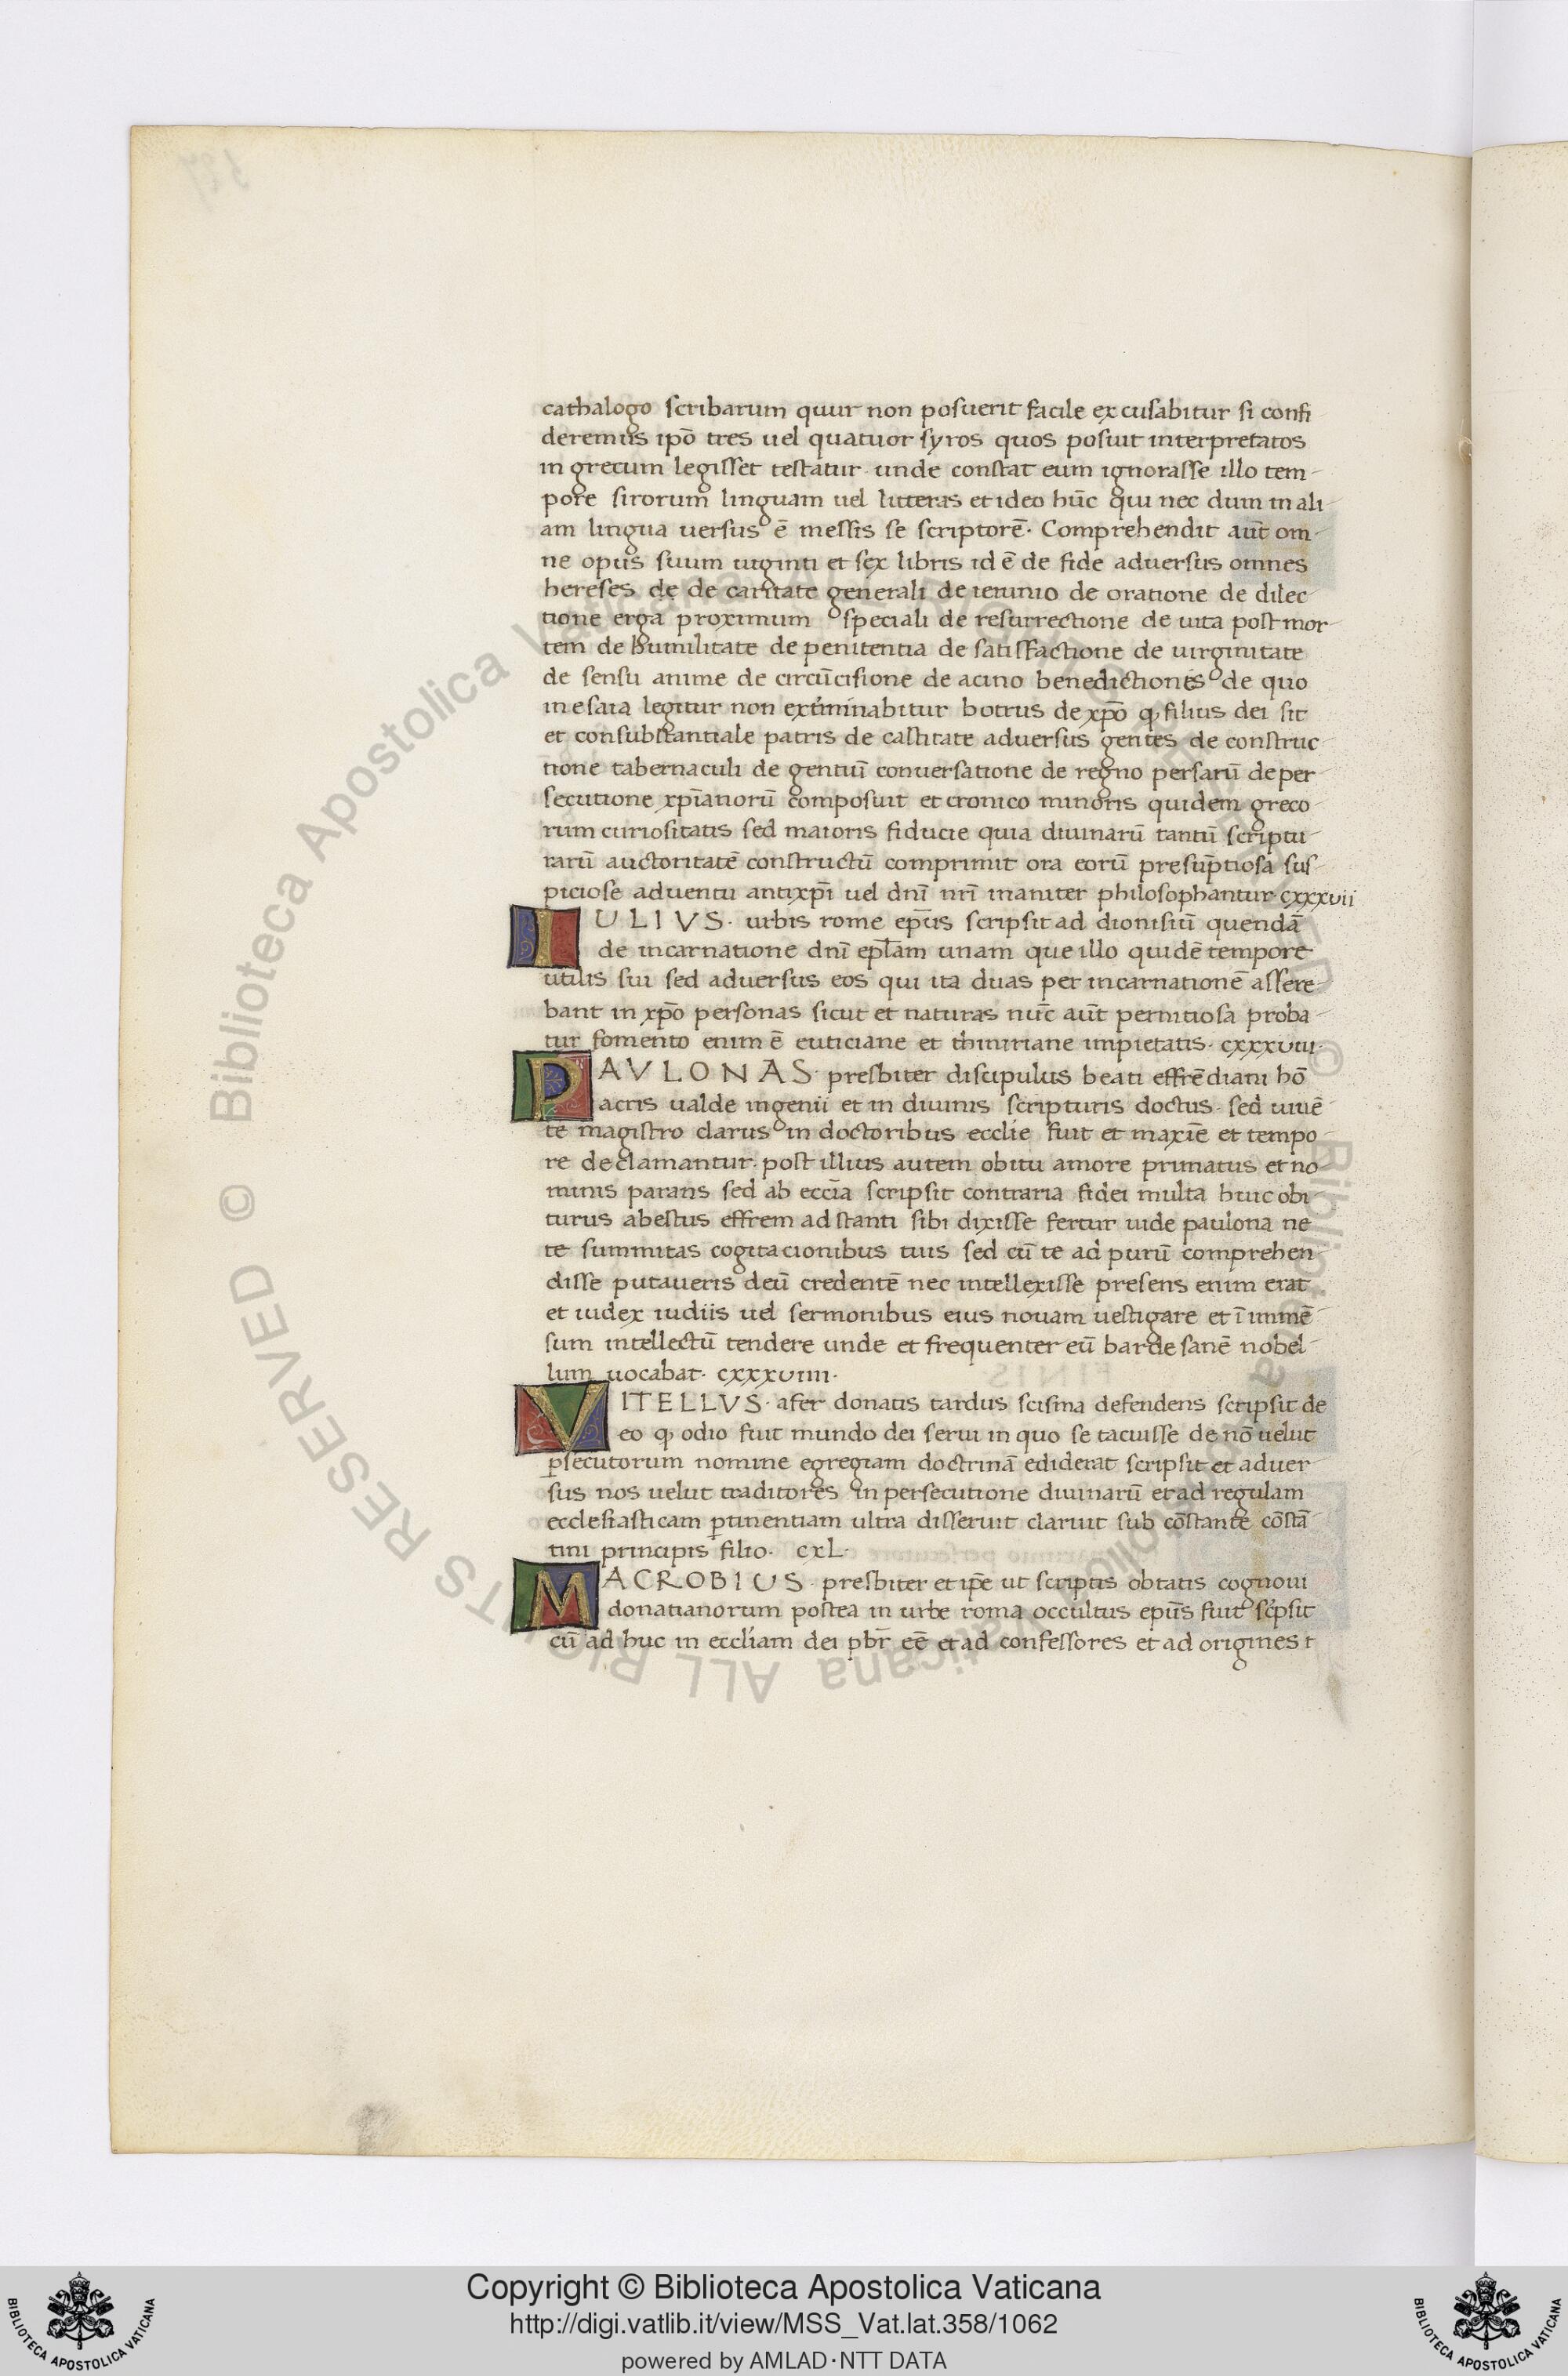 cathalogo scribarum quur non posuerit facile excusabitur si consi
deremus ipō tres uel quatuor syros quos posuit interpretatos
in grecum legisset testatur unde constat eum ignorasse illo tem-
pore sirorum linguam uel litteras et ideo hūc qui nec dum in ali-
am lingua uersus ē messis se scriptorē. Comprehendit aūt om-
ne opus suum uiginti et sex libris id ē de fide aduersus omnes
hereses de de caritate generali de ieiunio de oratione de dilec
tione erga proximum speciali de resurrectione de uita post mor-
tem de humilitate de penitentia de satisfactione de uirginitate
de sensu anime de circūcisione de acino benedictiones de quo
in esaia legitur non exterminabitur botrus de xpō qꝫ filius dei sit
et consubstantiale patris de castitate aduersus gentes de construc-
tione tabernaculi de gentiū conuersatione de regno persarū de per-
secutione xpianorū composuit et cronico minoris quidem greco-
rum curiositatis sed maioris fiducie quia diuinarū tantū scriptu-
rarū auctoritatē constructū comprimit ora eorū presuptiosa sus-
piciose aduentu antixpi uel dnī nrī inaniter philosophantur. cxxxvii
IULIVS. urbis rome epūs scripsit ad dionisiū quendā
de incarnatione dnī eplam unam que illo quidē tempore
utilis sui sed aduersus eos qui ita duas per incarnationē assere-
bant in xpō personas sicut et naturas nūc aūt pernitiosa proba-
tur fomento enim ē euticiane et thimiriane impietatis. cxxxviii.
PAVLONAS. presbiter discipulus beati effrēdiani hō
acris ualde ingenii et in diuinis scripturis doctus. sed uiuē
te magistro clarus in doctoribus ecclie fuit et maxīe et tempo-
re declamantur. post illius autem obitu amore primatus et no-
minis parans sed ab eccīa scripsit contraria fidei multa huic obi-
turus abestus effrem adstanti sibi dixisse fertur uide paulona ne
te summitas cogitacionibus tuis sed cū te ad purū comprehen-
disse putaueris deū credentē nec intellexisse presens enim erat
et iudex iudiis uel sermonibus eius nouam uestigare et ī immē-
sum intellectū tendere unde et frequenter eū bardesanē nobel-
lum uocabat. cxxxviiii.
VITELLVS. afer donatis tardus scisma defendens scripsit de
eo qꝫ odio fuit mundo dei serui in quo se tacuisse de nō uelut
psecutorum nomine egregiam doctrinā ediderat scripsit et aduer-
sus nos uelut traditores in persecutione diuinarū et ad regulam
ecclesiasticam ptinentiam ultra disseruit claruit sub cōstante cōstā-
tini principis filio. cxL.
MACROBIUS. presbiter et ipe ut scriptis obtatis cognoui
donatianorum postea in urbe roma occultus epūs fuit scpsit
cū ad huc in eccliam dei pbr eē et ad confessores et ad origines t
Copyright © Biblioteca Apostolica Vaticana
http://digi.vatlib.it/view/MSS_Vat.lat.358/1062
powered by AMLAD·NTT DATA
BIBLIOTECA APOSTOLICA VATICANA
BIBLIOTECA APOSTOLICA VATICANA
© Biblioteca Apostolica Vaticana ALL RIGHTS RESERVED